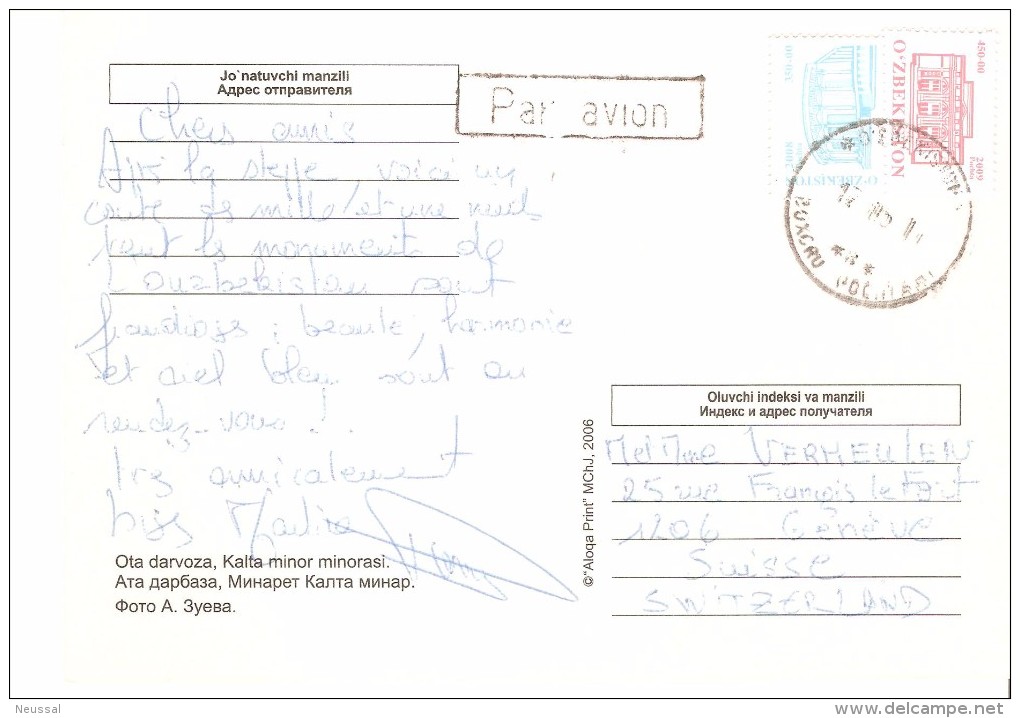 Jo`natuvchi manzili
Адрес отправителя
Par avion
Chers amis
la steppe, voici un
conte des mille et une nuits
tant les monuments de
l'Ouzbekistan sont
grandioses ; beauté, harmonie
et ciel bleu sont au
rendez-vous !
Très amicalement
Ota darvoza, Kalta minor minorasi.
Ата дарбаза, Минарет Калта минар.
Фото А. Зуева.
©"Aloqa Print" MChJ, 2006
O'ZBEKISTON
450-00
2009
O'ZBEKISTON
Oluvchi indeksi va manzili
Индекс и адрес получателя
M et Mme VERMEULEN
25 rue François le Fort
1206 Genève
Suisse
SWITZERLAND
Neussal
delcampe.net